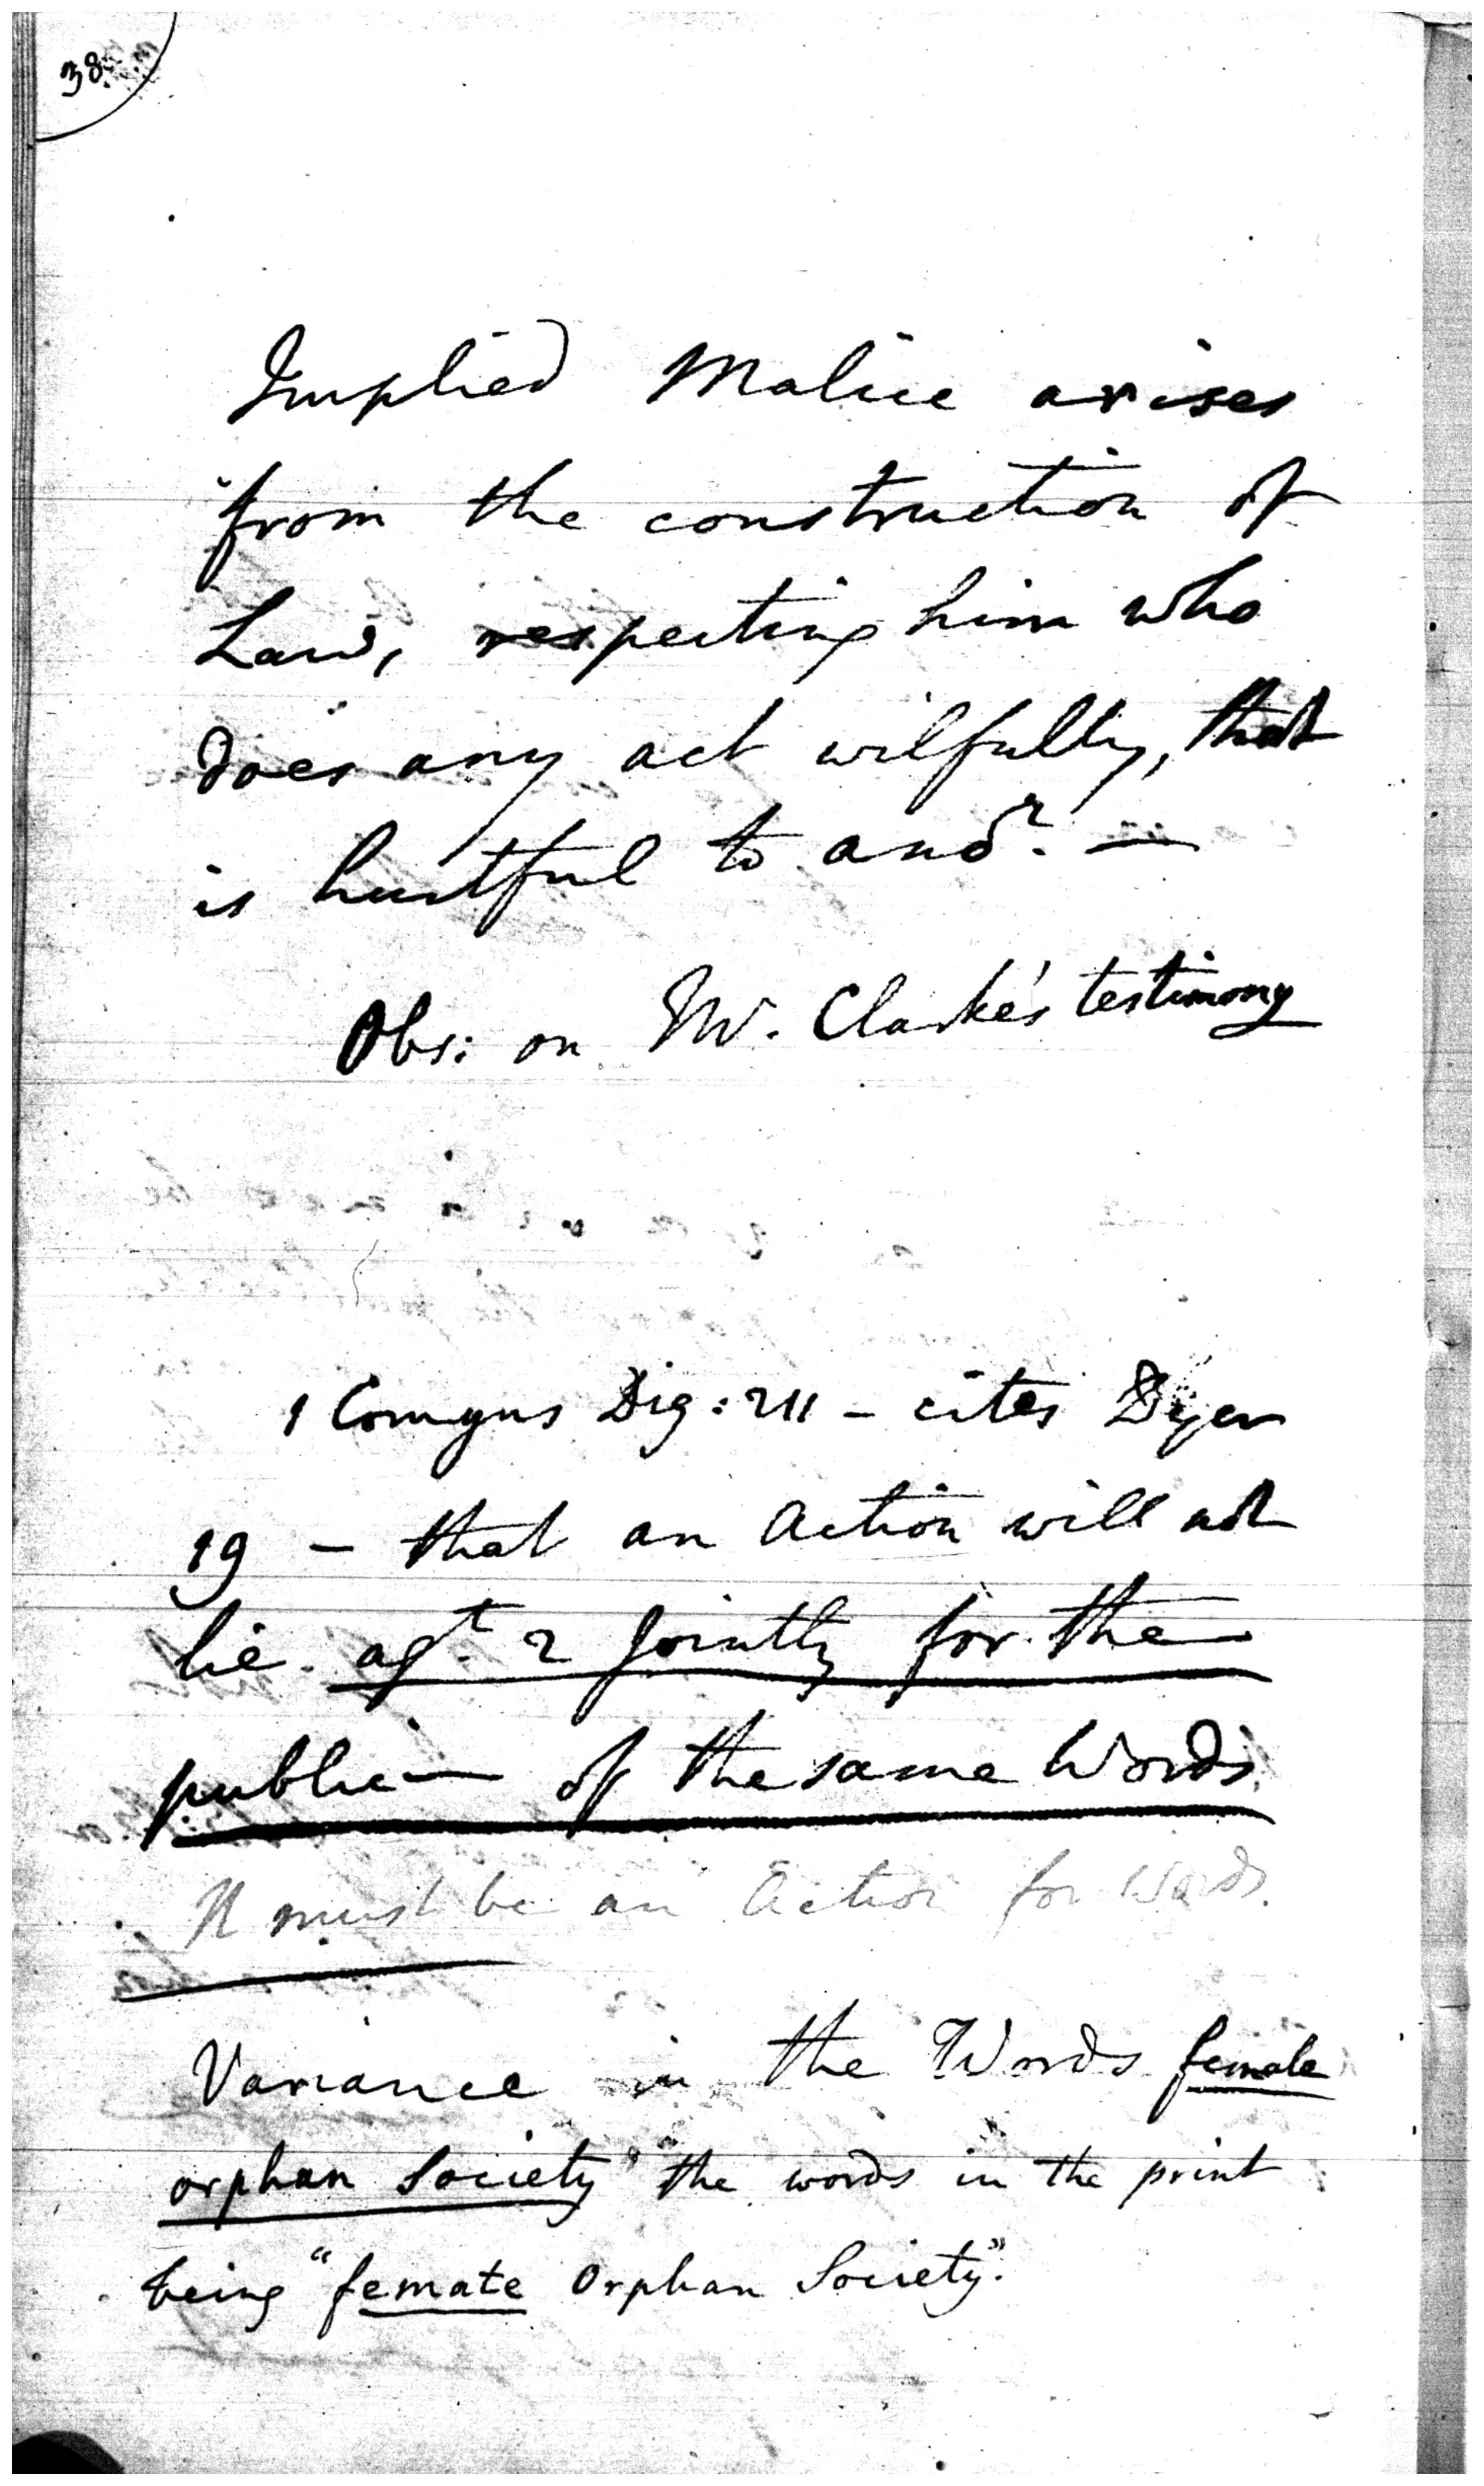 38
Implied Malice arises
from the construction of
Law, respecting him who
does any act wilfully, that
is hurtful to anoʳ. —
Obs: on Mr. Clarke's testimony
1 Comyns Dig: 211 – cites Dyer
19 – that an Action will not
lie agᵗ. 2 jointly for the
public— of the same Words
It must be an Action for Words.
Variance in the Words female
orphan Society" the words in the print
being "femate Orphan Society".